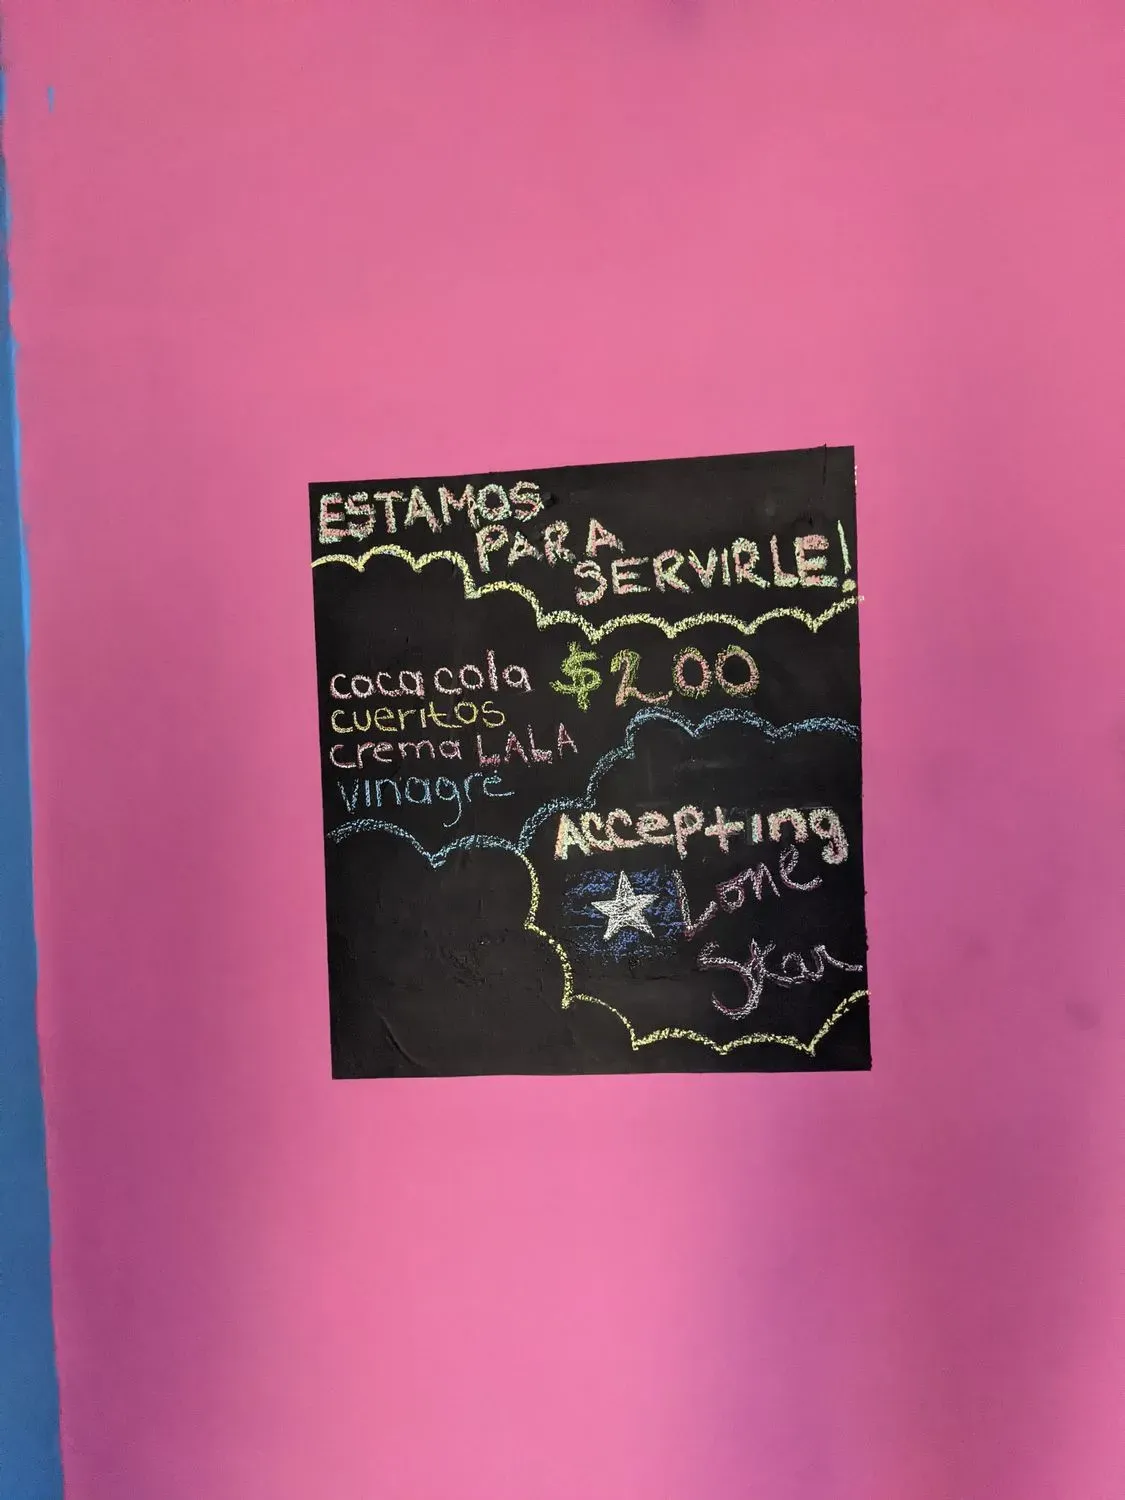 ESTAMOS
PARA
SERVIRLE!
coca cola $2.00
cueritos
crema LALA
vinagre
Accepting
Lone
Star